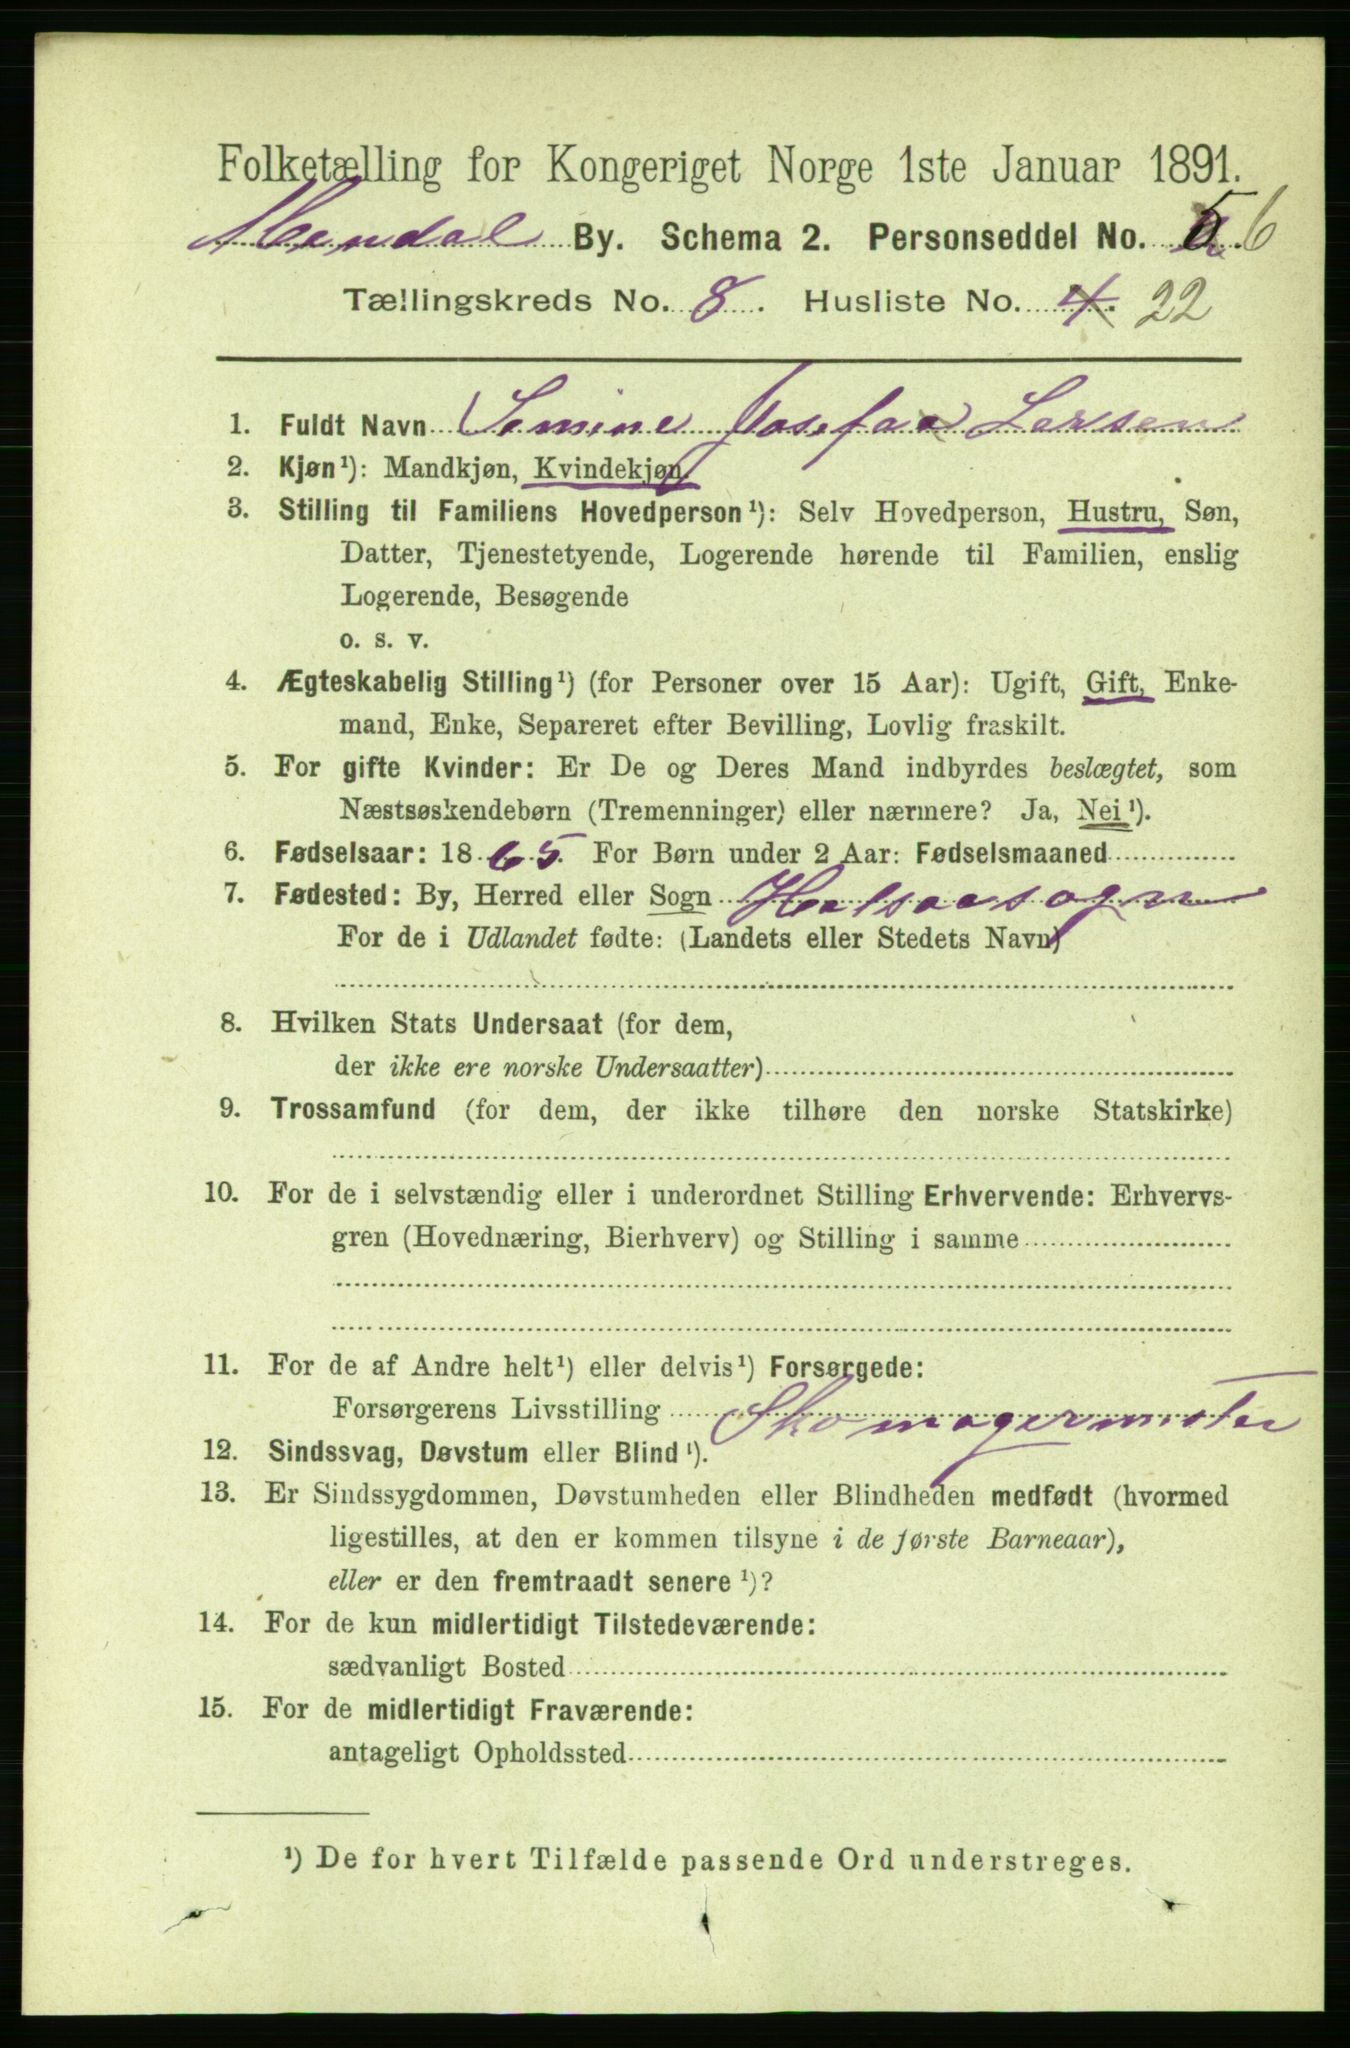 Folketælling for Kongeriget Norge 1ste Januar 1891.
Mandal By. Schema 2. Personseddel No. 5 6
Tællingskreds No. 8. Husliste No. 4. 22
1. Fuldt Navn Semine Josefa Larsen
2. Kjøn¹): Mandkjøn, Kvindekjøn.
3. Stilling til Familiens Hovedperson¹): Selv Hovedperson, Hustru, Søn,
Datter, Tjenestetyende, Logerende hørende til Familien, enslig
Logerende, Besøgende
o. s. v.
4. Ægteskabelig Stilling¹) (for Personer over 15 Aar): Ugift, Gift, Enke-
mand, Enke, Separeret efter Bevilling, Lovlig fraskilt.
5. For gifte Kvinder: Er De og Deres Mand indbyrdes beslægtet, som
Næstsøskendebørn (Tremenninger) eller nærmere? Ja, Nei¹).
6. Fødselsaar: 1865. For Børn under 2 Aar: Fødselsmaaned
7. Fødested: By, Herred eller Sogn Halsaasogn
For de i Udlandet fødte: (Landets eller Stedets Navn)
8. Hvilken Stats Undersaat (for dem,
der ikke ere norske Undersaatter)
9. Trossamfund (for dem, der ikke tilhøre den norske Statskirke)
10. For de i selvstændig eller i underordnet Stilling Erhvervende: Erhvervs-
gren (Hovednæring, Bierhverv) og Stilling i samme
11. For de af Andre helt¹) eller delvis¹) Forsørgede:
Forsørgerens Livsstilling Skomagermester
12. Sindssvag, Døvstum eller Blind¹).
13. Er Sindssygdommen, Døvstumheden eller Blindheden medfødt (hvormed
ligestilles, at den er kommen tilsyne i de første Barneaar),
eller er den fremtraadt senere¹)?
14. For de kun midlertidigt Tilstedeværende:
sædvanligt Bosted
15. For de midlertidigt Fraværende:
antageligt Opholdssted
¹) De for hvert Tilfælde passende Ord understreges.